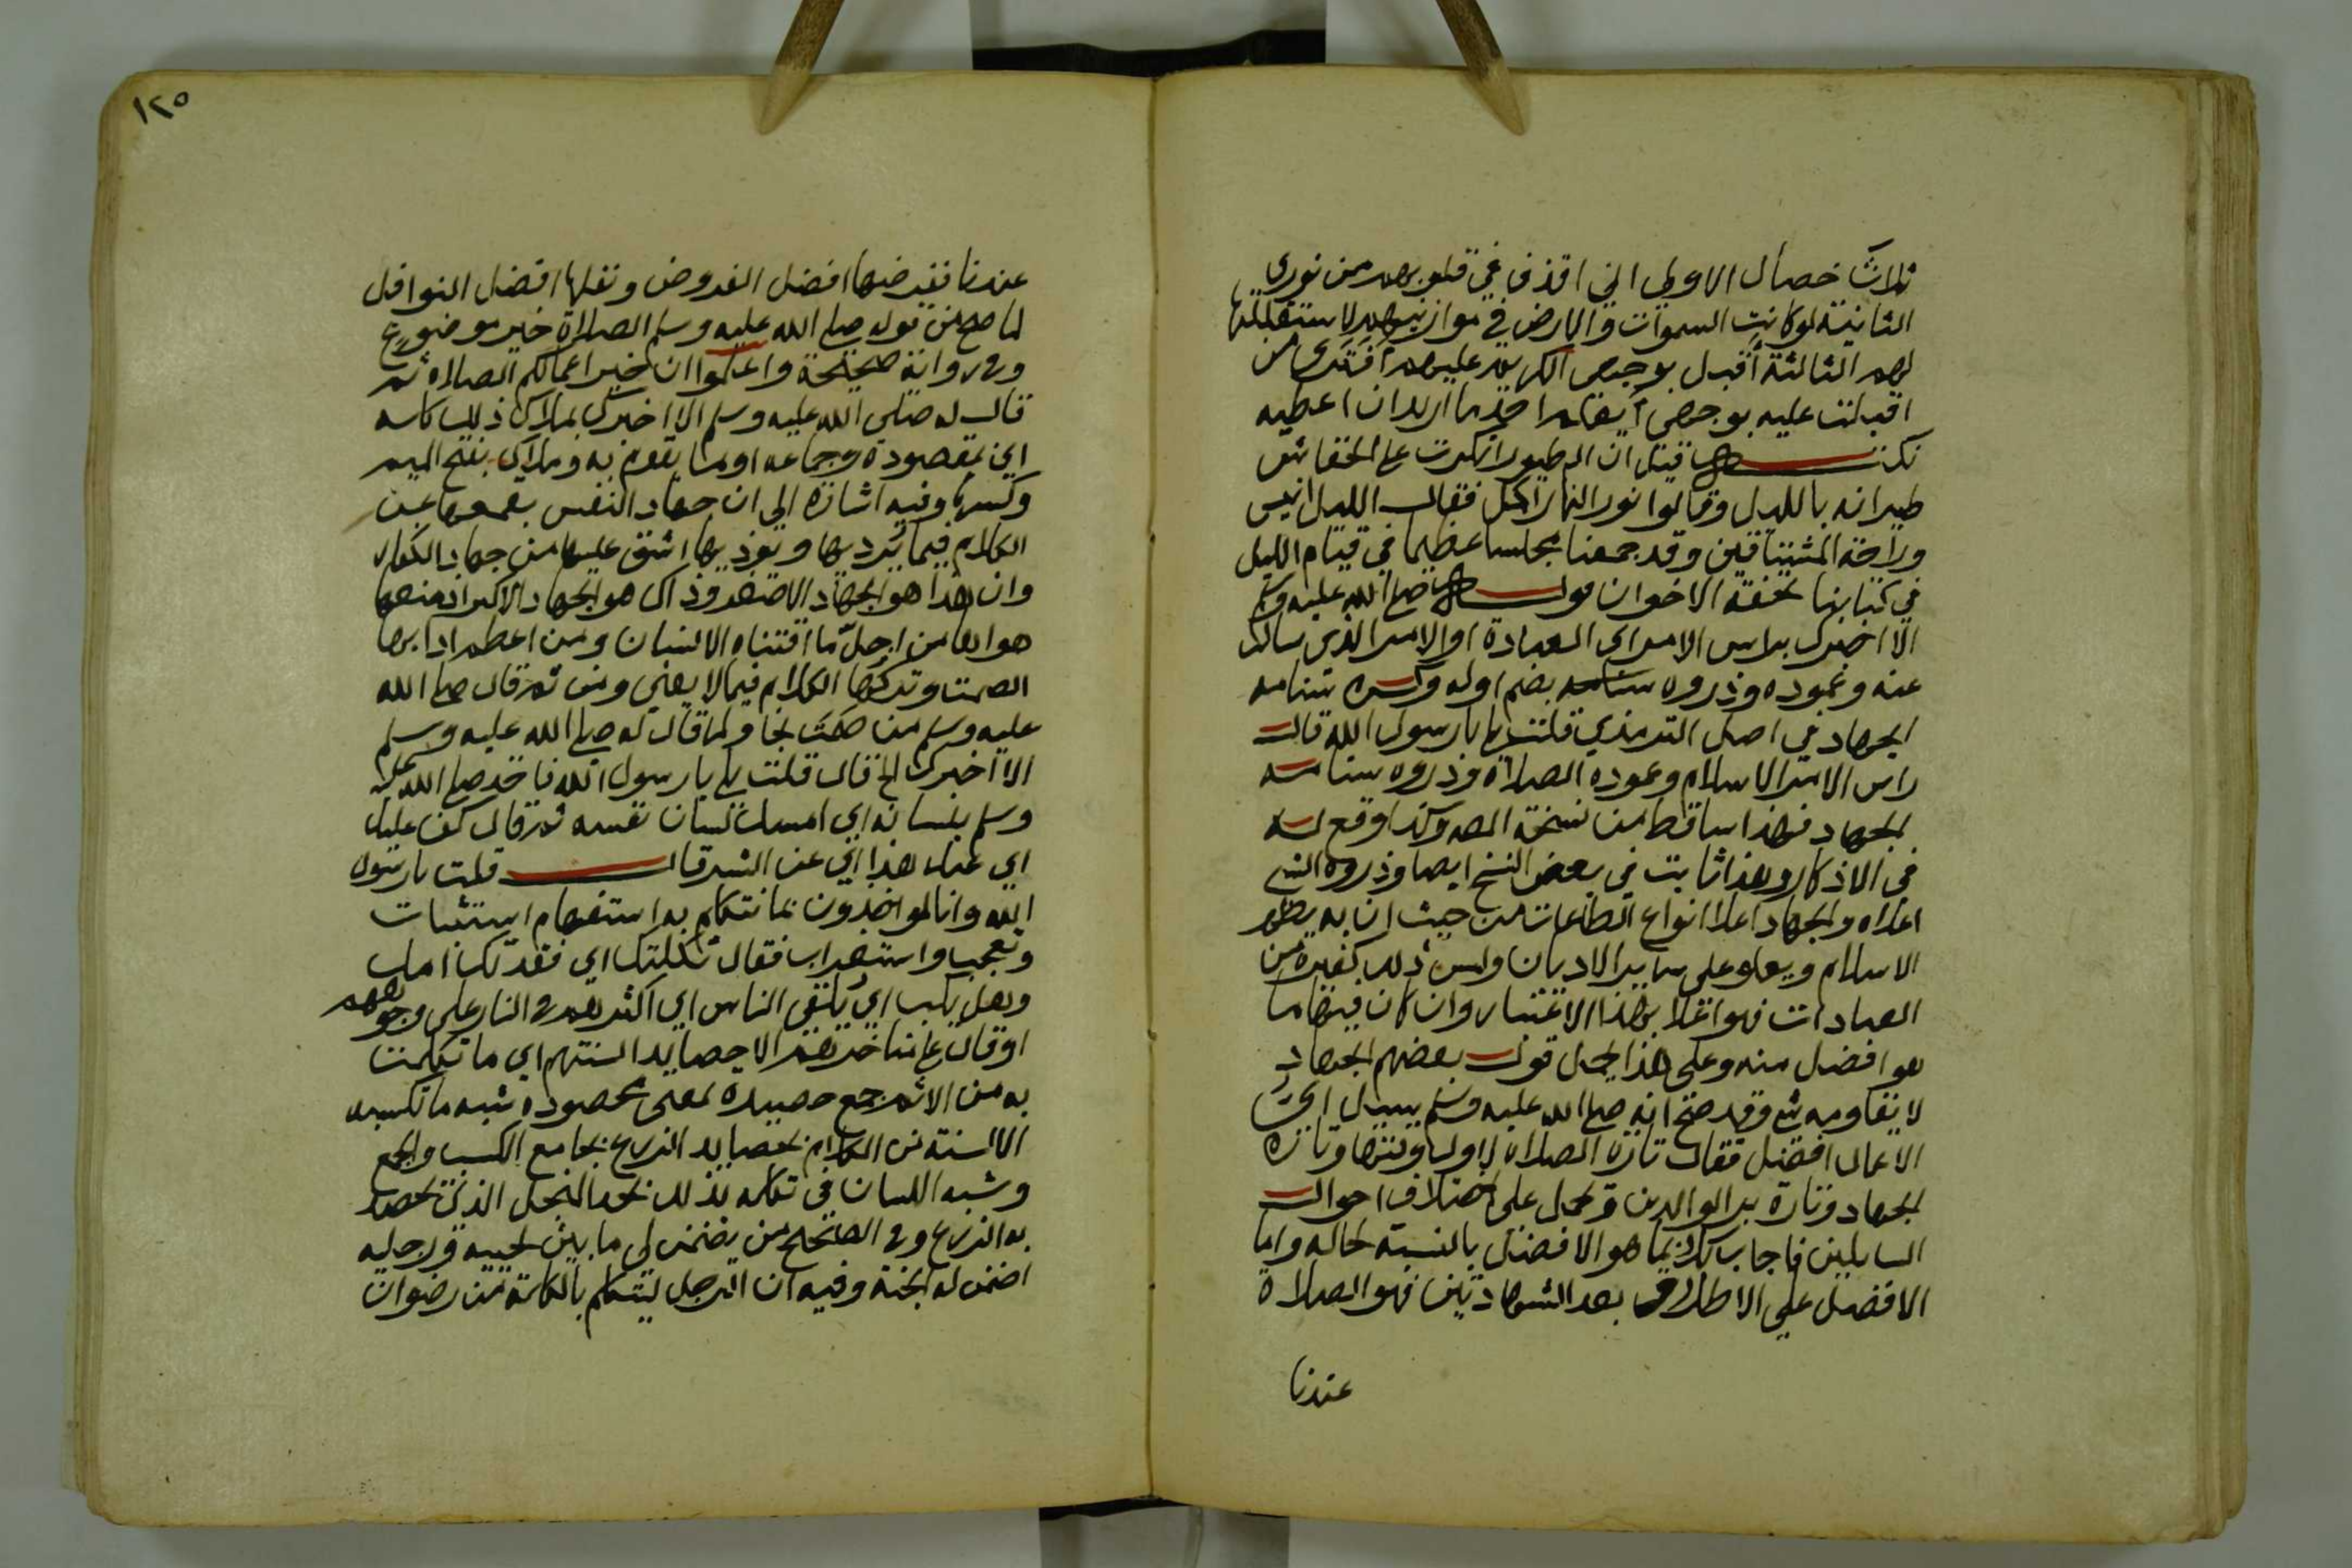 ثلاث خصال الاولي اني اقذف في قلوبهم من نوري
الثانية لو كانت السموات والارض في موازينهم لاستقللتها
لهم الثالثة أقبل بوجهي الكريم عليهم أفترى من
اقبلت عليه بوجهي أيعلم احد ما اريد ان اعطيه
نكتة قيل ان الطيور انكرت على الخفاش
طيرانه بالليل وقالوا نور النهار اكمل فقال الليل انيس
وراحة المشتاقين وقد جمعنا مجلسا عظيما في قيام الليل
في كتابنا تحفة الاخوان قوله صلى الله عليه وسلم
الا اخبرك براس الامر اي العبادة او الامر الذي سالت
عنه وعموده وذروه سنامه بضم اوله وكسره سنامه
الجهاد في اصل الترمذي قلت بلي يا رسول الله قال
راس الامر الاسلام وعموده الصلاة وذروه سنامه
الجهاد فهذا ساقط من نسخة المص وكذا وقع له
في الاذكار وهذا ثابت في بعض النسخ ايضا وذروه الشي
اعلاه والجهاد اعلا انواع الطاعات من حيث ان به يظهر
الاسلام ويعلو على ساير الاديان وليس ذلك لغيره من
العبادات فهو اعلا بهذا الاعتبار وان كان فيها ما
هو افضل منه وعلى هذا يحمل قول بعضهم الجهاد
لا يقاومه شي وقد صح انه صلى الله عليه وسلم سيل اي
الاعمال افضل فقال تارة الصلاة لاول وقتها وتارة
الجهاد وتارة بر الوالدين وحمل على اختلاف احوال
السايلين فاجاب كلا بما هو الافضل بالنسبة لحاله واما
الافضل على الاطلاق بعد الشهادتين فهو الصلاة
عندنا
١٢٥
عندنا ففرضها افضل الفروض ونفلها افضل النوافل
لما صح من قوله صلى الله عليه وسلم الصلاة خير موضوع
وفي رواية صحيحة واعلموا ان خير اعمالكم الصلاة ثم
قال له صلى الله عليه وسلم الا اخبرك بملاك ذلك كله
اي بمقصوده وجماعه او ما يقوم به وملاك بفتح الميم
وكسرها وفيه اشارة الي ان جهاد النفس بقمعها عن
الكلام فيما يرديها ويوذيها اشق عليها من جهاد الكفار
وان هذا هو الجهاد الاصغر وذاك هو الجهاد الاكبر اذ منعها
هواها من اجل ما اقتناه الانسان ومن اعظم ادابها
الصمت وتركها الكلام فيما لا يعني ومن ثم قال صلى الله
عليه وسلم من صمت نجا ولما قال له صلى الله عليه وسلم
الا اخبرك الخ قال قلت بلي يا رسول الله فاخذ صلى الله عليه
وسلم بلسانه اي امسك لسان نفسه ثم قال كف عليك
اي عنك هذا اي عن الشر قال قلت يا رسول
الله وانا لمواخذون بما نتكلم به استفهام استثبات
وتعجب واستغراب فقال ثكلتك اي فقدتك امك
وهل يكب اي يلقي الناس اي اكثرهم في النار على وجوههم
او قال على مناخرهم الا حصايد السنتهم اي ما تكلمت
به من الاثم جمع حصيده بمعنى محصوده شبه ما تكسبه
الالسنة من الكلام بحصايد الزرع بجامع الكسب والجمع
وشبه اللسان في تكلمه بذلك بحد المنجل الذي يحصد
به الزرع وفي الصحيح من يضمن لي ما بين لحييه ورجليه
اضمن له الجنة وفيه ان الرجل ليتكلم بالكلمة من رضوان